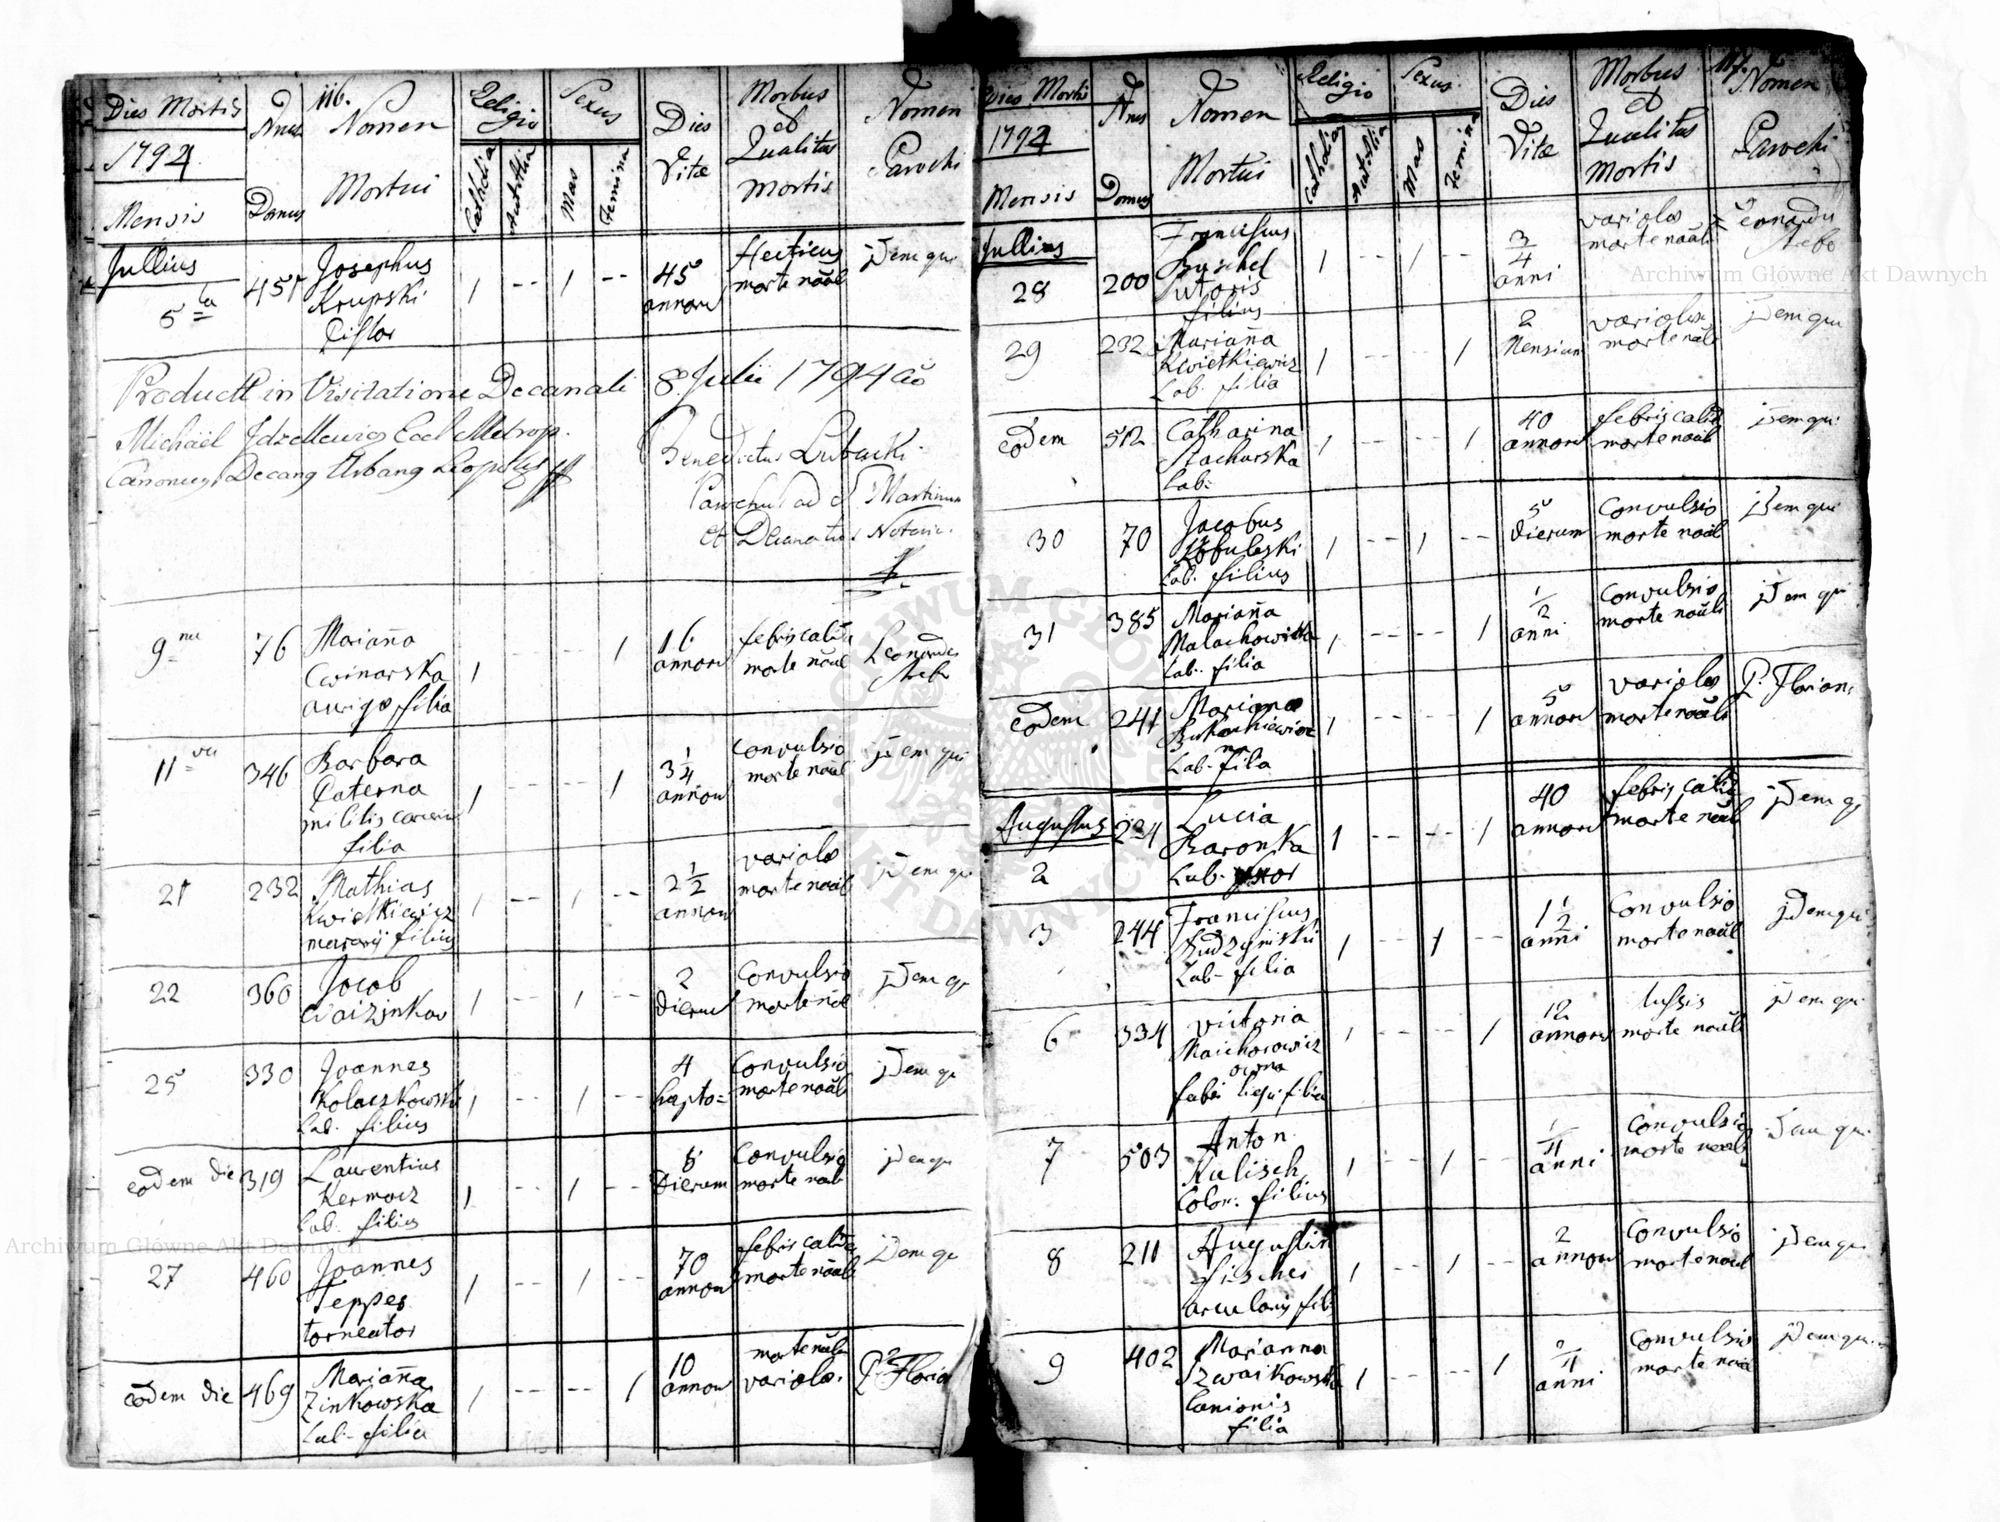 116.
Dies Mortis
1794
Mensis
Nrus
Domus
Nomen
Mortui
Religio
Catholica
Sexus
Mas
Femina
Dies
Vitæ
Morbus
et
Qualitas
Mortis
Nomen
Parochi
Jullius
5ta
451
Josephus
Krupski
Pistor
1
1
--
45
annoru
Hecticus
morte nāāl
jdem qui
Product in Visitatione Decanali 8 Julii 1794
Michaël
Canonicus Decang Urbang Leopolis
Benedictus
Parochus ad S Martinum
et Decanatus Notarius
9na
76
Marianna
Cwinarska
aurigæ filia
1
1
16
annoru
febris calida
morte nāāl
Leonardus
11va
346
Barbara
Paterna
militis
filia
1
--
--
1
3 1/4
annoru
Convulsio
morte nāāl
jdem qui
21
232
Mathias
Kwietkiewicz
filius
1
--
1
--
2 1/2
annoru
variolæ
morte nāāl
jdem qui
22
360
Jacob
1
--
1
--
2
Dierum
Convulsio
morte nāāl
jdem qui
25
330
Joannes
Kolaczkowski
Lab. filius
1
--
1
--
4
Convulsio
morte nāāl
jdem qui
eodem die
319
Laurentius
Kermosz
Lab. filius
1
--
1
--
8
Dierum
Convulsio
morte nāāl
jdem qui
27
460
Joannes
Tepper
torneator
1
--
1
--
70
annoru
febris calida
morte nāāl
jdem qui
eodem die
469
Marianna
Zinkowska
Lab. filia
1
--
--
1
10
annoru
morte nāāl
variolæ
P. Florian
117.
Dies Mortis
1794
Mensis
Nrus
Domus
Nomen
Mortui
Religio
Catholica
Sexus
Mas
Femina
Dies
Vitæ
Morbus
et
Qualitas
Mortis
Nomen
Parochi
Jullius
28
200
Franciscus
Buschel
Sutoris
filius
1
--
1
--
3/4
anni
variolæ
morte nāāl
29
232
Marianna
Kwietkiewicz
Lab. filia
1
--
--
1
2
Mensium
variolæ
morte nāāl
jdem qui
eodem
512
Catharina
Stacharska
Lab.
1
--
--
1
40
annoru
febris calida
morte nāāl
jdem qui
30
70
Jacobus
Lab. filius
1
--
1
--
5
Dierum
Convulsio
morte nāāl
jdem qui
31
385
Marianna
Malachowska
Lab. filia
1
--
--
1
1/2
anni
Convulsio
morte nāāl
jdem qui
eodem
241
Marianna
Lab. filia
1
--
--
1
5
annoru
variolæ
morte nāāl
P. Florian
Augustus
2
224
Lucia
Baronka
Lab. uxor
1
--
1
40
annoru
febris calida
morte nāāl
jdem qui
3
244
Franciscus
Lab. filia
1
--
1
--
1 1/2
anni
Convulsio
morte nāāl
jdem qui
6
334
Victoria
Maichorowicz
owna
fabri filia
1
--
--
1
12
annoru
tussis
morte nāāl
jdem qui
7
503
Anton
Kulisch
Colon. filius
1
--
1
--
anni
Convulsio
morte nāāl
jdem qui
8
211
Augustin
Fischer
arcularii fil.
1
--
1
--
2
annoru
Convulsio
morte nāāl
jdem qui
9
402
Marianna
Szwaikowska
Lanionis
filia
1
--
--
1
anni
Convulsio
morte nāāl
jdem qui
Archiwum Główne Akt Dawnych
Archiwum Główne Akt Dawnych
ARCHIWUM GŁÓWNE AKT DAWNYCH